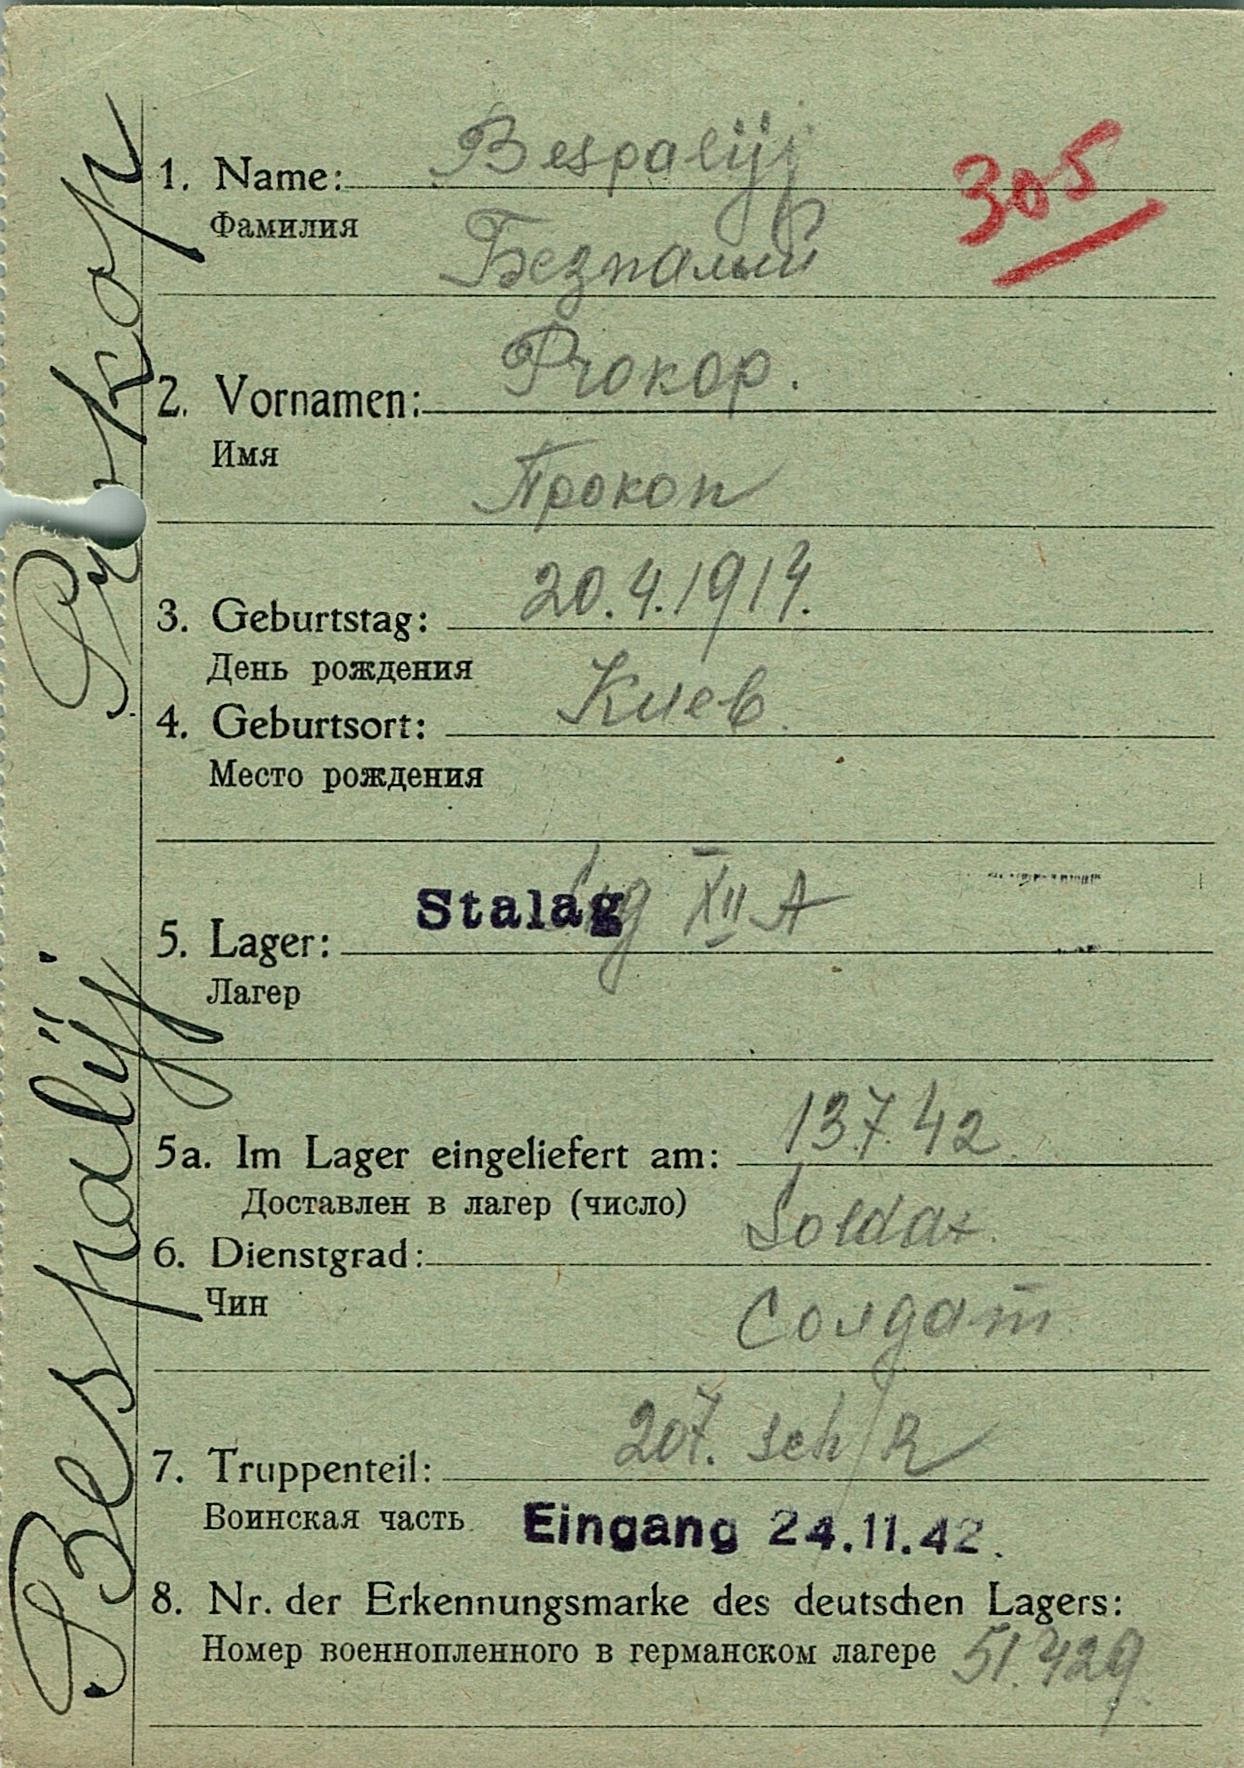 Bespalyj Prokop
1. Name: Bespalijj
305
Фамилия
Безпалый
2. Vornamen: Prokop.
Имя
Прокоп
3. Geburtstag: 20.4.1914.
День рождения
4. Geburtsort: Киев.
Место рождения
5. Lager: Stalag XII A
Лагер
5a. Im Lager eingeliefert am: 13.7.42.
Доставлен в лагер (число)
6. Dienstgrad: Soldat.
Чин
Солдат
7. Truppenteil: 207. Sch/R
Воинская часть
Eingang 24.11.42.
8. Nr. der Erkennungsmarke des deutschen Lagers:
Номер военнопленного в германском лагере 51.429.